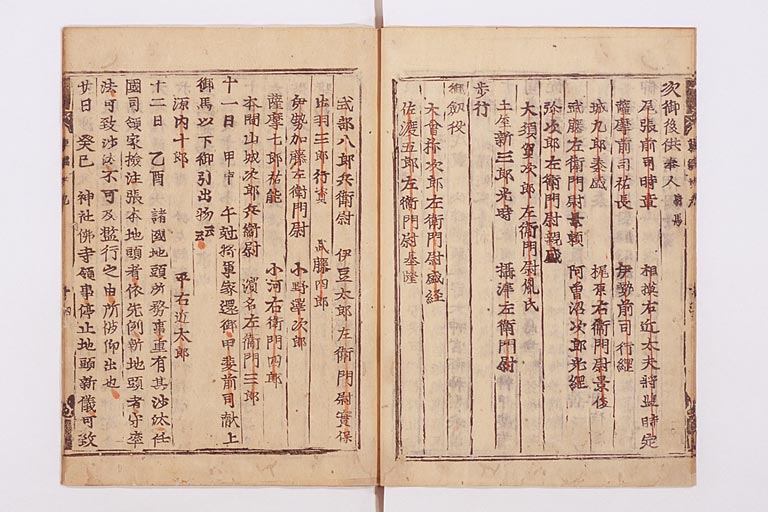 次御後供奉人 騎馬
尾張前司時章 相模右近大夫将監時定
薩摩前司祐長 伊勢前司行経
城九郎泰盛 梶原右衛門尉景俊
武藤左衛門尉景頼 阿曽沼次郎光経
弥次郎左衛門尉親盛
大須賀次郎左衛門尉胤氏
土屋新三郎光時 攝津左衛門尉
歩行
御釼役
大曽祢次郎左衛門尉盛経
佐渡五郎左衛門尉基隆
式部八郎兵衛尉 伊豆太郎左衛門尉實保
出羽三郎行資 武藤四郎
伊勢加藤左衛門尉 小野澤次郎
薩摩七郎祐能 小河右衛門四郎
本間山城次郎兵衛尉 濱名左衛門三郎
十一日 甲申 午尅将軍家還御甲斐前司献上
御馬以下御引出物云云
源内十郎 平右近太郎
十二日 乙酉 諸國地頭所務事重有其沙汰任
國司領家檢注張本地頭者依先例新地頭者守率
法可致沙汰不可及濫行之由所被仰出也
廿日 癸巳 神社佛寺領事停止地頭新儀可致